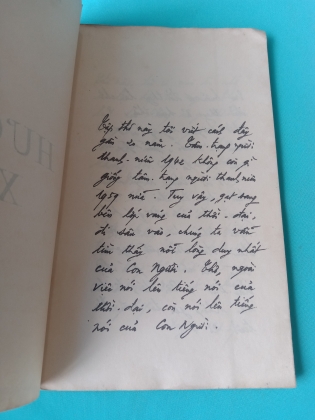 HƯƠ
X
Tập thơ này tôi viết cách đây
gần 20 năm. Tâm trạng người
thanh-niên 1942 không còn gì
giống tâm trạng người thanh niên
1959 nữa. Tuy vậy, gạt sang
bên lớp váng của thời-đại,
đi sâu vào, chúng ta vẫn
tìm thấy nỗi lòng duy nhất
của Con Người. Thơ, ngoài
viên nói lên tiếng nói của
thời-đại, còn nói lên tiếng
nói của Con Người.